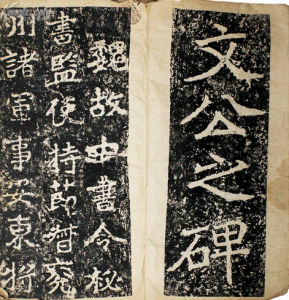 文公之碑
魏故中書令秘
書監使持節督兗
州諸軍事安東將